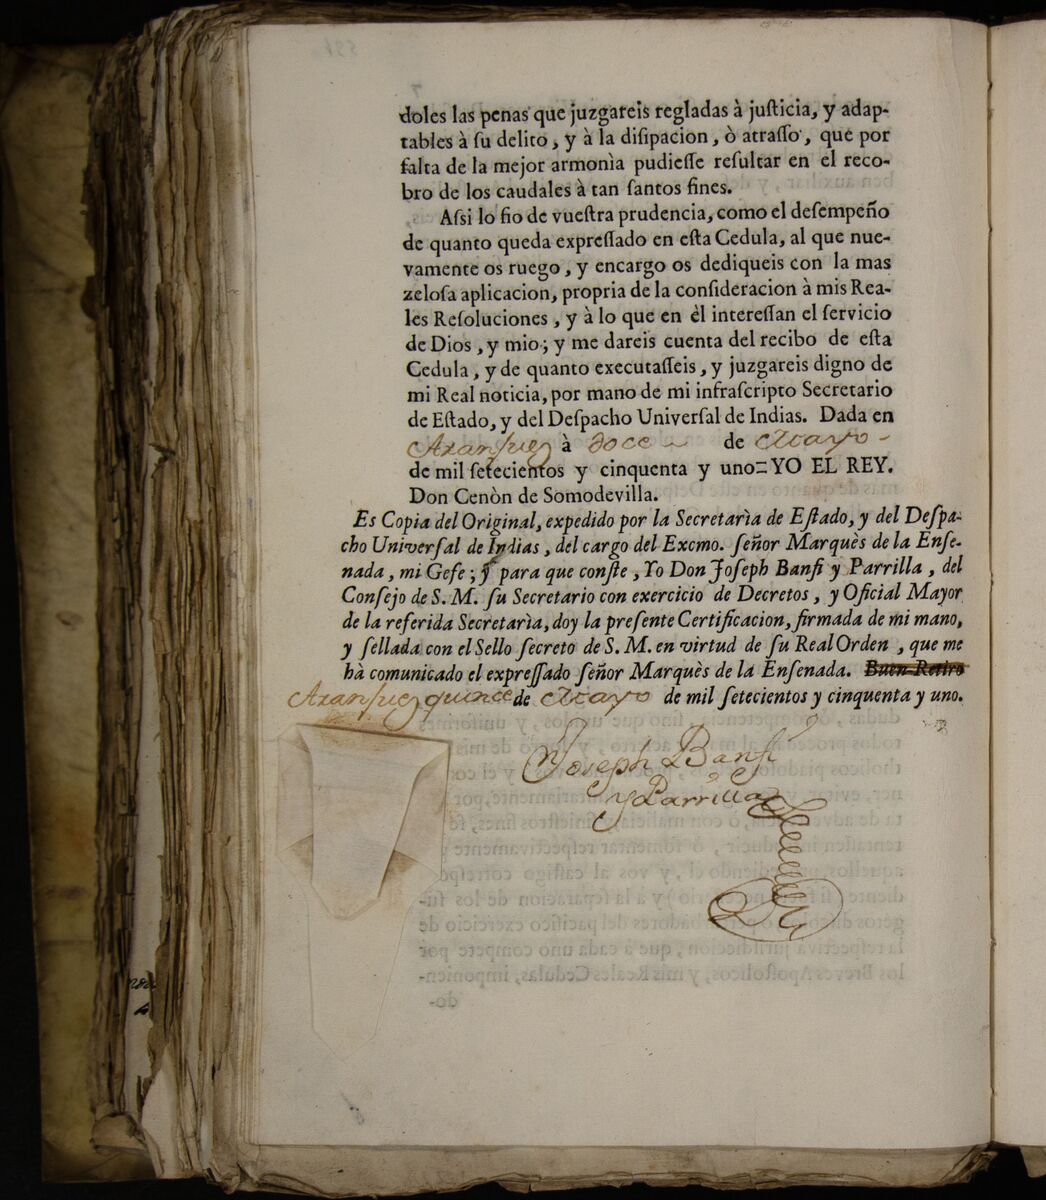 doles las penas que juzgareis regladas à juſticia, y adap-
tables à ſu delito, y à la diſipacion, ò atraſſo, que por
falta de la mejor armonìa pudieſſe reſultar en el reco-
bro de los caudales à tan ſantos fines.
Aſsi lo fio de vueſtra prudencia, como el deſempeño
de quanto queda expreſſado en eſta Cedula, al que nue-
vamente os ruego, y encargo os dediqueis con la mas
zeloſa aplicacion, propria de la conſideracion à mis Rea-
les Reſoluciones, y à lo que en èl intereſſan el ſervicio
de Dios, y mio; y me dareis cuenta del recibo de eſta
Cedula, y de quanto executaſſeis, y juzgareis digno de
mi Real noticia, por mano de mi infraſcripto Secretario
de Eſtado, y del Deſpacho Univerſal de Indias. Dada en
Aranjuez à doce de Mayo
de mil ſetecientos y cinquenta y uno=YO EL REY.
Don Cenòn de Somodevilla.
Es Copia del Original, expedido por la Secretarìa de Eſtado, y del Deſpa-
cho Univerſal de Indias, del cargo del Excmo. ſeñor Marquès de la Enſe-
nada, mi Gefe; y para que conſte, Yo Don Joſeph Banfi y Parrilla, del
Conſejo de S. M. ſu Secretario con exercicio de Decretos, y Oficial Mayor
de la referida Secretarìa, doy la preſente Certificacion, firmada de mi mano,
y ſellada con el Sello ſecreto de S. M. en virtud de ſu Real Orden, que me
hà comunicado el expreſſado ſeñor Marquès de la Enſenada. Buen Retiro
Aranjuez quince de Mayo de mil ſetecientos y cinquenta y uno.
Joseph Banfi
y Parrilla